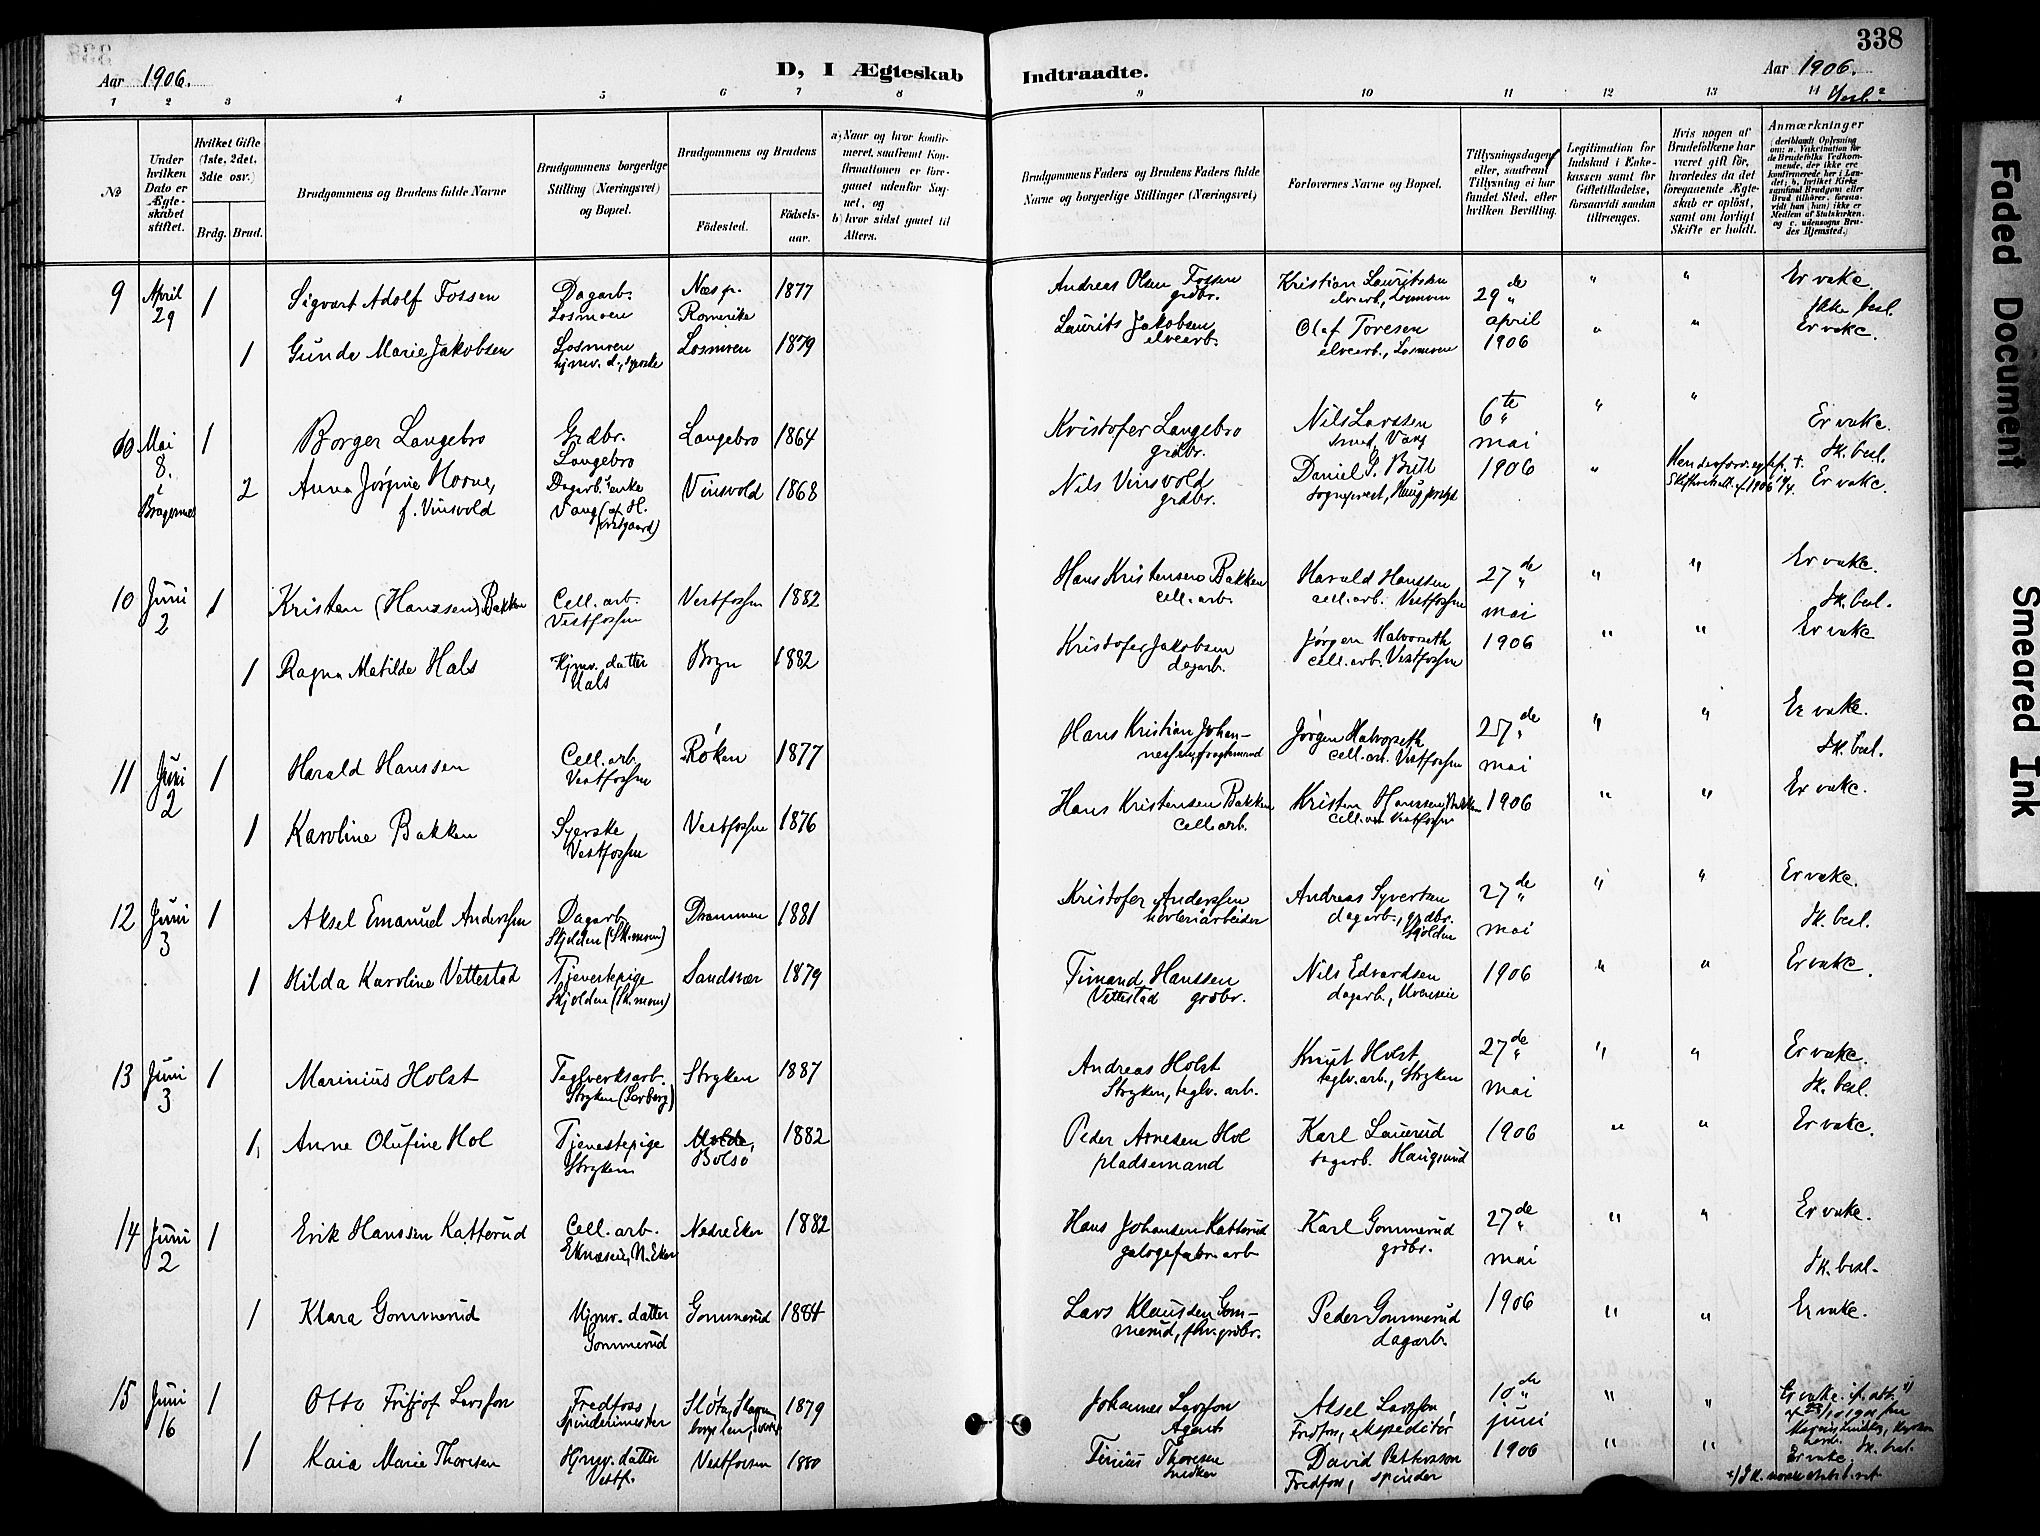 338
Aar 1906.
D, I Ægteskab Indtraadte.
Aar 1906.
1 2 3 4 5 6 7 8 9 10 11 12 13 14
No
Under hvilken Dato er Ægteskabet stiftet.
Hvilket Gifte (1ste, 2det, 3die osv.)
Brdg. Brud.
Brudgommens og Brudens fulde Navne
Brudgommens borgerlige Stilling (Næringsvei) og Bopæl.
Brudgommens og Brudens
Födested.
Födselsaar.
a) Naar og hvor konfirmeret, saafremt Konfirmationen er foregaaet udenfor Sognet, og
b) hvor sidst gaaet til Alters.
Brudgommens Faders og Brudens Faders fulde Navne og borgerlige Stillinger (Næringsvei)
Forlovernes Navne og Bopæl.
Tillysningsdagen eller, saafremt Tillysning ei har fundet Sted, efter hvilken Bevilling.
Legitimation for Indskud i Enkekassen samt for Giftetilladelse, forsaavidt saadan tiltrænges.
Hvis nogen af Brudefolkene har været gift för, hvorledes da det foregaaende Ægteskab er oplöst, samt om lovligt Skifte er holdt.
Anmærkninger
9 April 29 1 Sigvart Adolf Fossen Dagarb. Losmoen Næs p. Romerike 1877 Andreas Olsen Fossen grdbr. Kristian Lauritsen elvarb., Losmoen 29de april 1906 " " Er vakc. Ikke besl.
1 Gunda Marie Jakobsen Losmoen hjmv. d., syerske Losmoen 1879 Laurits Jakobsen elvearb. Olaf Toresen elvearb., Losmoen " " Er vakc.
10 Mai 8. i Bragernes 1 Borger Langebro Grdbr. Langebro Langebro 1864 Kristofer Langebro grdbr. Nils Larssen smed, Vang 6te mai 1906 " " Er vakc. Sk. besl.
2 Anna Jørgine Horne, f. Vinsvold Dagarb. enke Vang Vinsvold 1868 Nils Vinsvold grdbr. Daniel G. Brill sogneprest " Er vakc.
10 Juni 2 1 Kristen (Hanssen) Bakken Cell. arb. Vestfossen Vestfossen 1882 Hans Kristensen Bakken cell. arb. Harald Hanssen cell. arb. Vestfossen 27de mai 1906 " " Er vakc. Sk. besl.
1 Ragna Matilde Hals Hjmv. datter Hals Bryn 1882 Kristofer Jakobsen dagarb. Jørgen Halvorseth cell. arb. Vestfossen " " Er vakc
11 Juni 2 1 Harald Hanssen Cell. arb. Vestfossen Røken 1877 Hans Kristian Johannessen, Jørgen Halvorseth cell. arb. Vestfossen 27de mai 1906 " " Er vakc. Sk. besl.
1 Karoline Bakken Syerske Vestfossen Vestfossen 1876 Hans Kristensen Bakken, cell. arb. Kristen Hanssen Bakken cell. arb Vestfossen " " Er vakc.
12 Juni 3 1 Aksel Emanuel Anderssen Dagarb. Skjolden (Sk.moen) Drammen 1881 Kristofer Anderssen Andreas Syvertsen dagarb., grdbr. Skjolden 27de mai 1906 " " Er vakc. Sk. besl.
1 Hilda Karoline Vettestad Tjenestepige Skjolden (Sk.moen) Sandsvær 1879 Timand Hanssen Vettestad grdbr. Nils Edvardsen dagarb., " " Er vakc.
13 Juni 3 1 Marinius Holst Teglverksarb. Stryken Stryken 1887 Andreas Holst Stryken, teglv. arb. Knut Holst teglv. arb., Stryken 27de mai 1906 " " Er vakc. Sk. besl.
1, Anne Olufine Hol Tjenestepige Stryken Molde, Bolsø 1882 Peder Arnesen Hol pladsemand Karl Laurud dagarb. Haugsund " " Er vakc.
14 Juni 2 1 Erik Hanssen Katterud Cell. arb. N. Eker Nedre Eker 1882 Hans Johansen Katterud galogefabr. arb Karl Gommerud grdbr. 27de mai 1906 " " Er vakc. Sk. besl.
1 Klara Gommerud Hjmv. datter Gommerud Gommerud 1884 Lars Klausen Gommerud, grdbr. Peder Gommerud dagarb. " " Er vakc.
15 Juni 16 1 Otto Fritjof Larsson Fredfoss, spinderimester 1879 Johannes Larsson, Agent Aksel Larsson, Fredfoss, ekspeditør 10de juni 1906 " " Er vakc.
1 Kaia Marie Thoresen Hjmv. datter Vestf. Vestfossen 1880 Tinius Thoresen snedker David Pettersson Fredfoss, spinder " " Er vakc. Sk. besl.
Faded Document
Smeared Ink